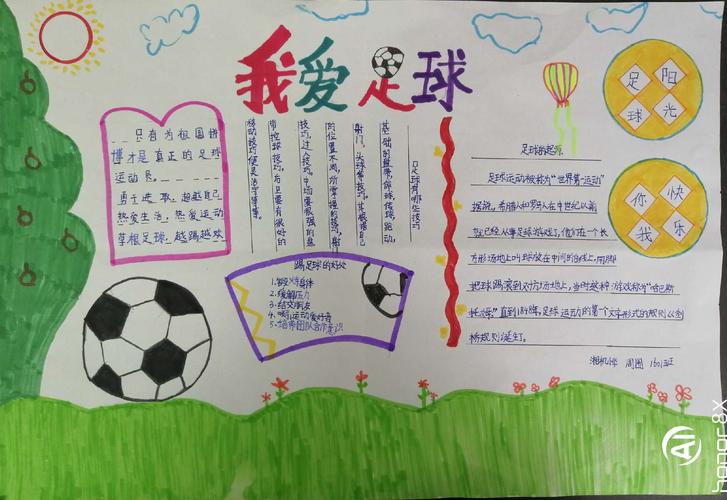 我爱足球
只有为祖国拼
博才是真正的足球
运动员。
勇于进取,超越自己
热爱生活,热爱运动
草根足球,越踢越欢
足球有哪些技巧
基础的盘带,停球,传球,跑动,
射门,头球等技巧,其根据自己
的位置不同,所掌握的技巧,
技巧,过人技巧,中场要很强的盘
带控球技巧,后卫要有很好的
踢足球的好处
1.锻炼身体
2.缓解压力
3.结交朋友
4.运动爱好者
5.培养团队合作意识
足球的起源
足球运动被称为“世界第一运动”
据说,希腊人和罗马人在中世纪以前
就已经从事足球游戏了,他们在一个长
方形场地上叫球放在中间的白线上,用脚
把球踢滚到对方场地上,当时称这种游戏称为“哈巴斯
托姆”直到19世纪,足球运动的第一个文字形式的规则以剑
桥规则诞生了。
周围 1601班
足阳
球光
你快
我乐
AI
honor 8X